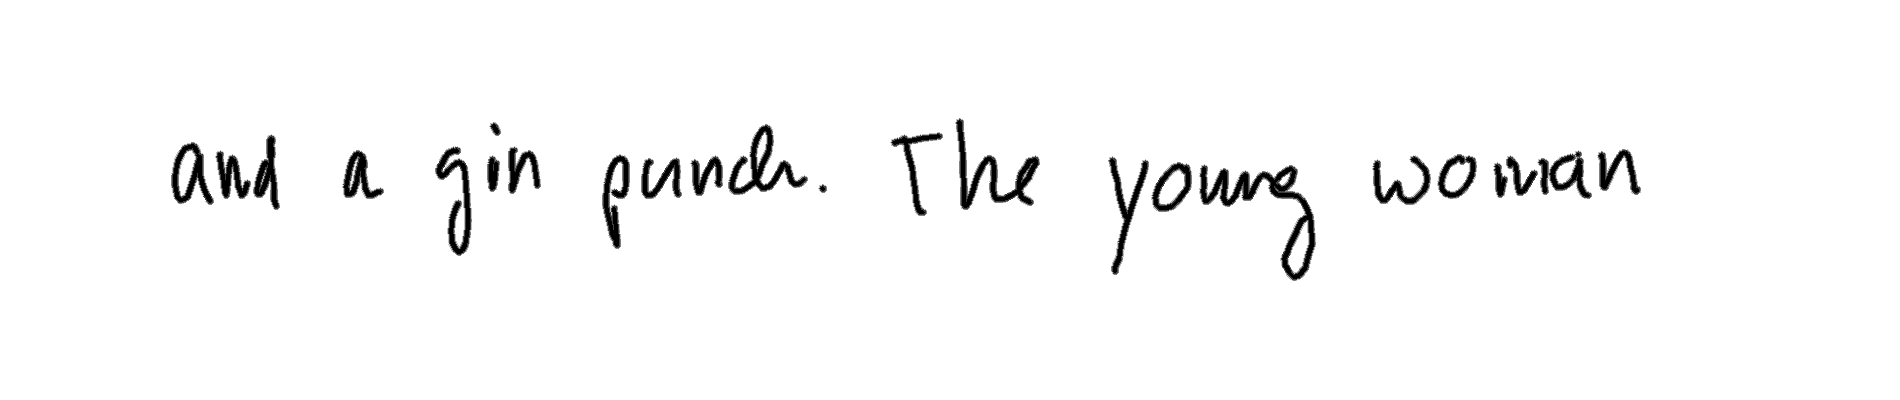 and a gin punch. The young woman